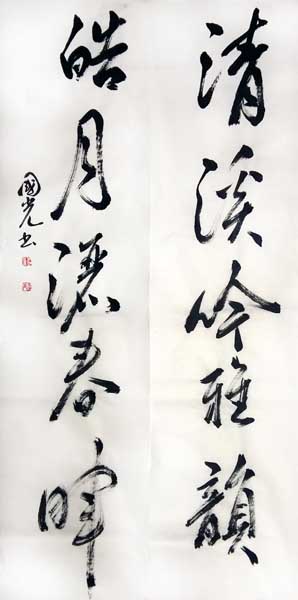 清溪吟雅韻
皓月灑春暉
國光书